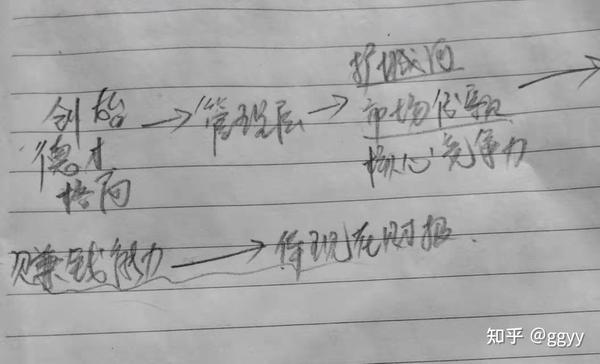 护城河
创始 → 管理层 → 市场份额 →
德才
核心竞争力
赚钱能力 → 体现在财报
知乎 @ggyy